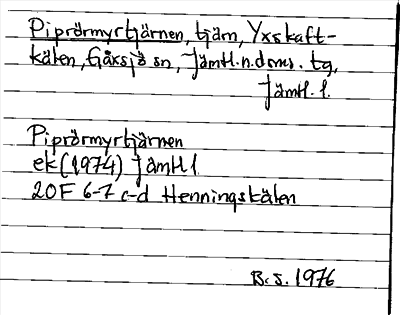 Piprörmyrtjärnen, tjärn, Yxskaft-
kälen, Gåxsjö sn, Jämtl.n.doms. tg,
Jämtl. l.
Piprörmyrtjärnen
ek (1974) Jämtl l
20F 6-7 c-d Henningskälen
B.S. 1976